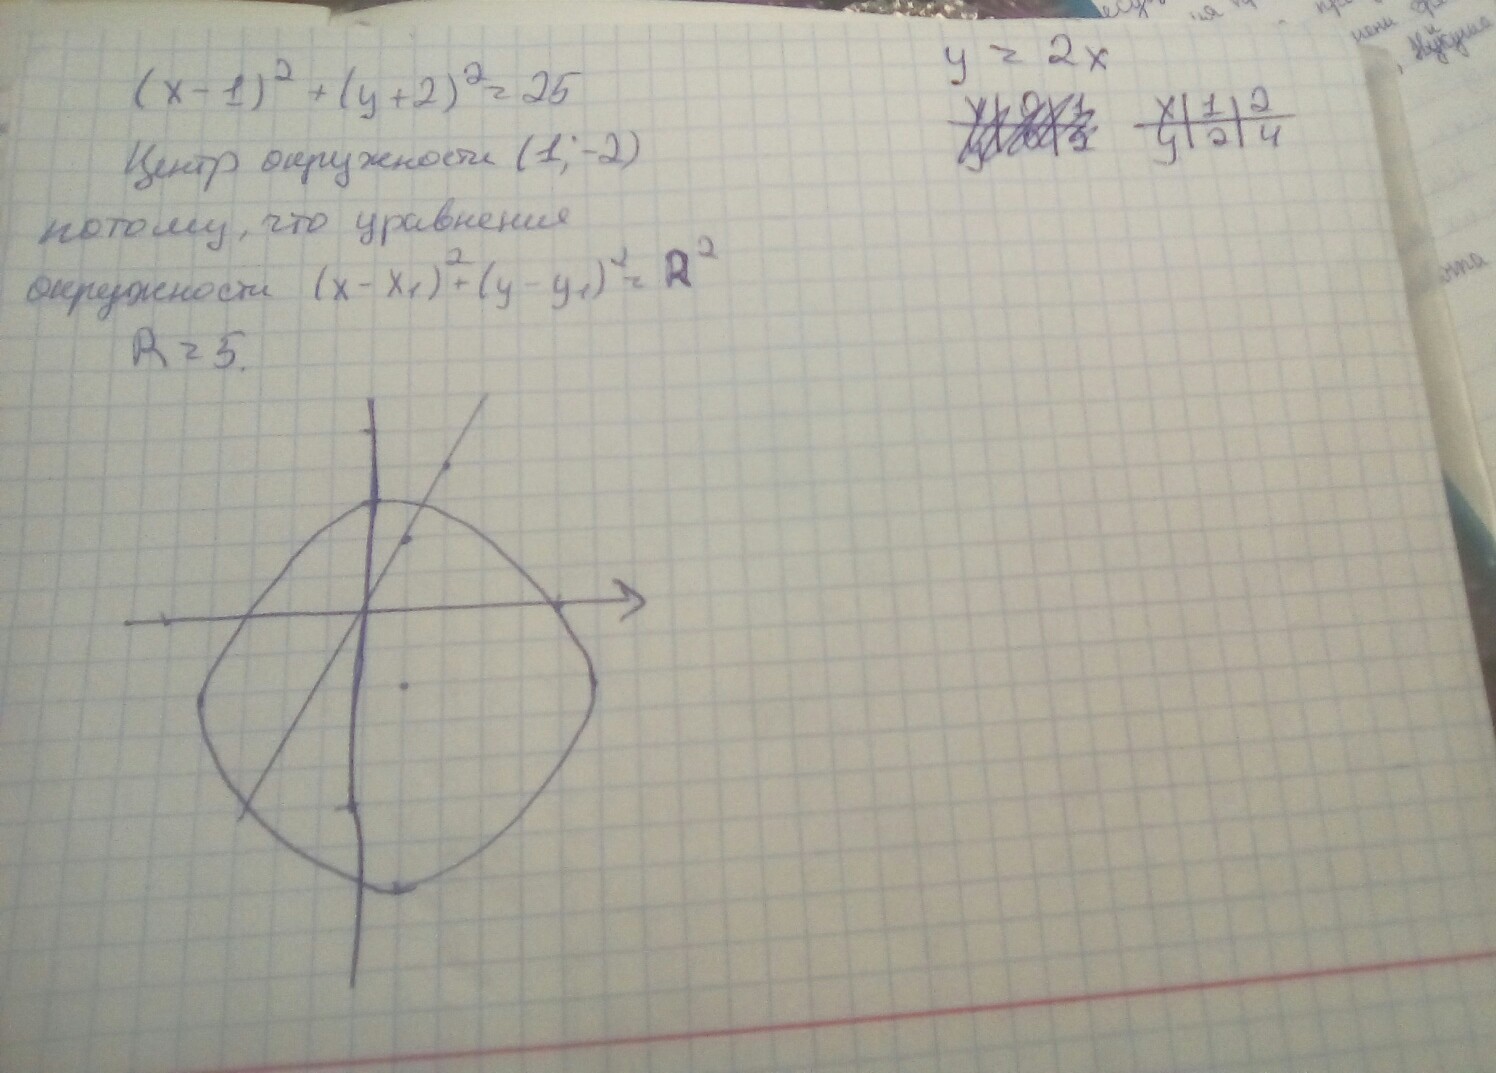 (x-1)² + (y+2)² = 25
Центр окружности (1;-2)
потому, что уравнения
окружности (x-x₁)² + (y-y₁)² = R²
R = 5.
y = 2x
x | 1 | 2
y | 2 | 4